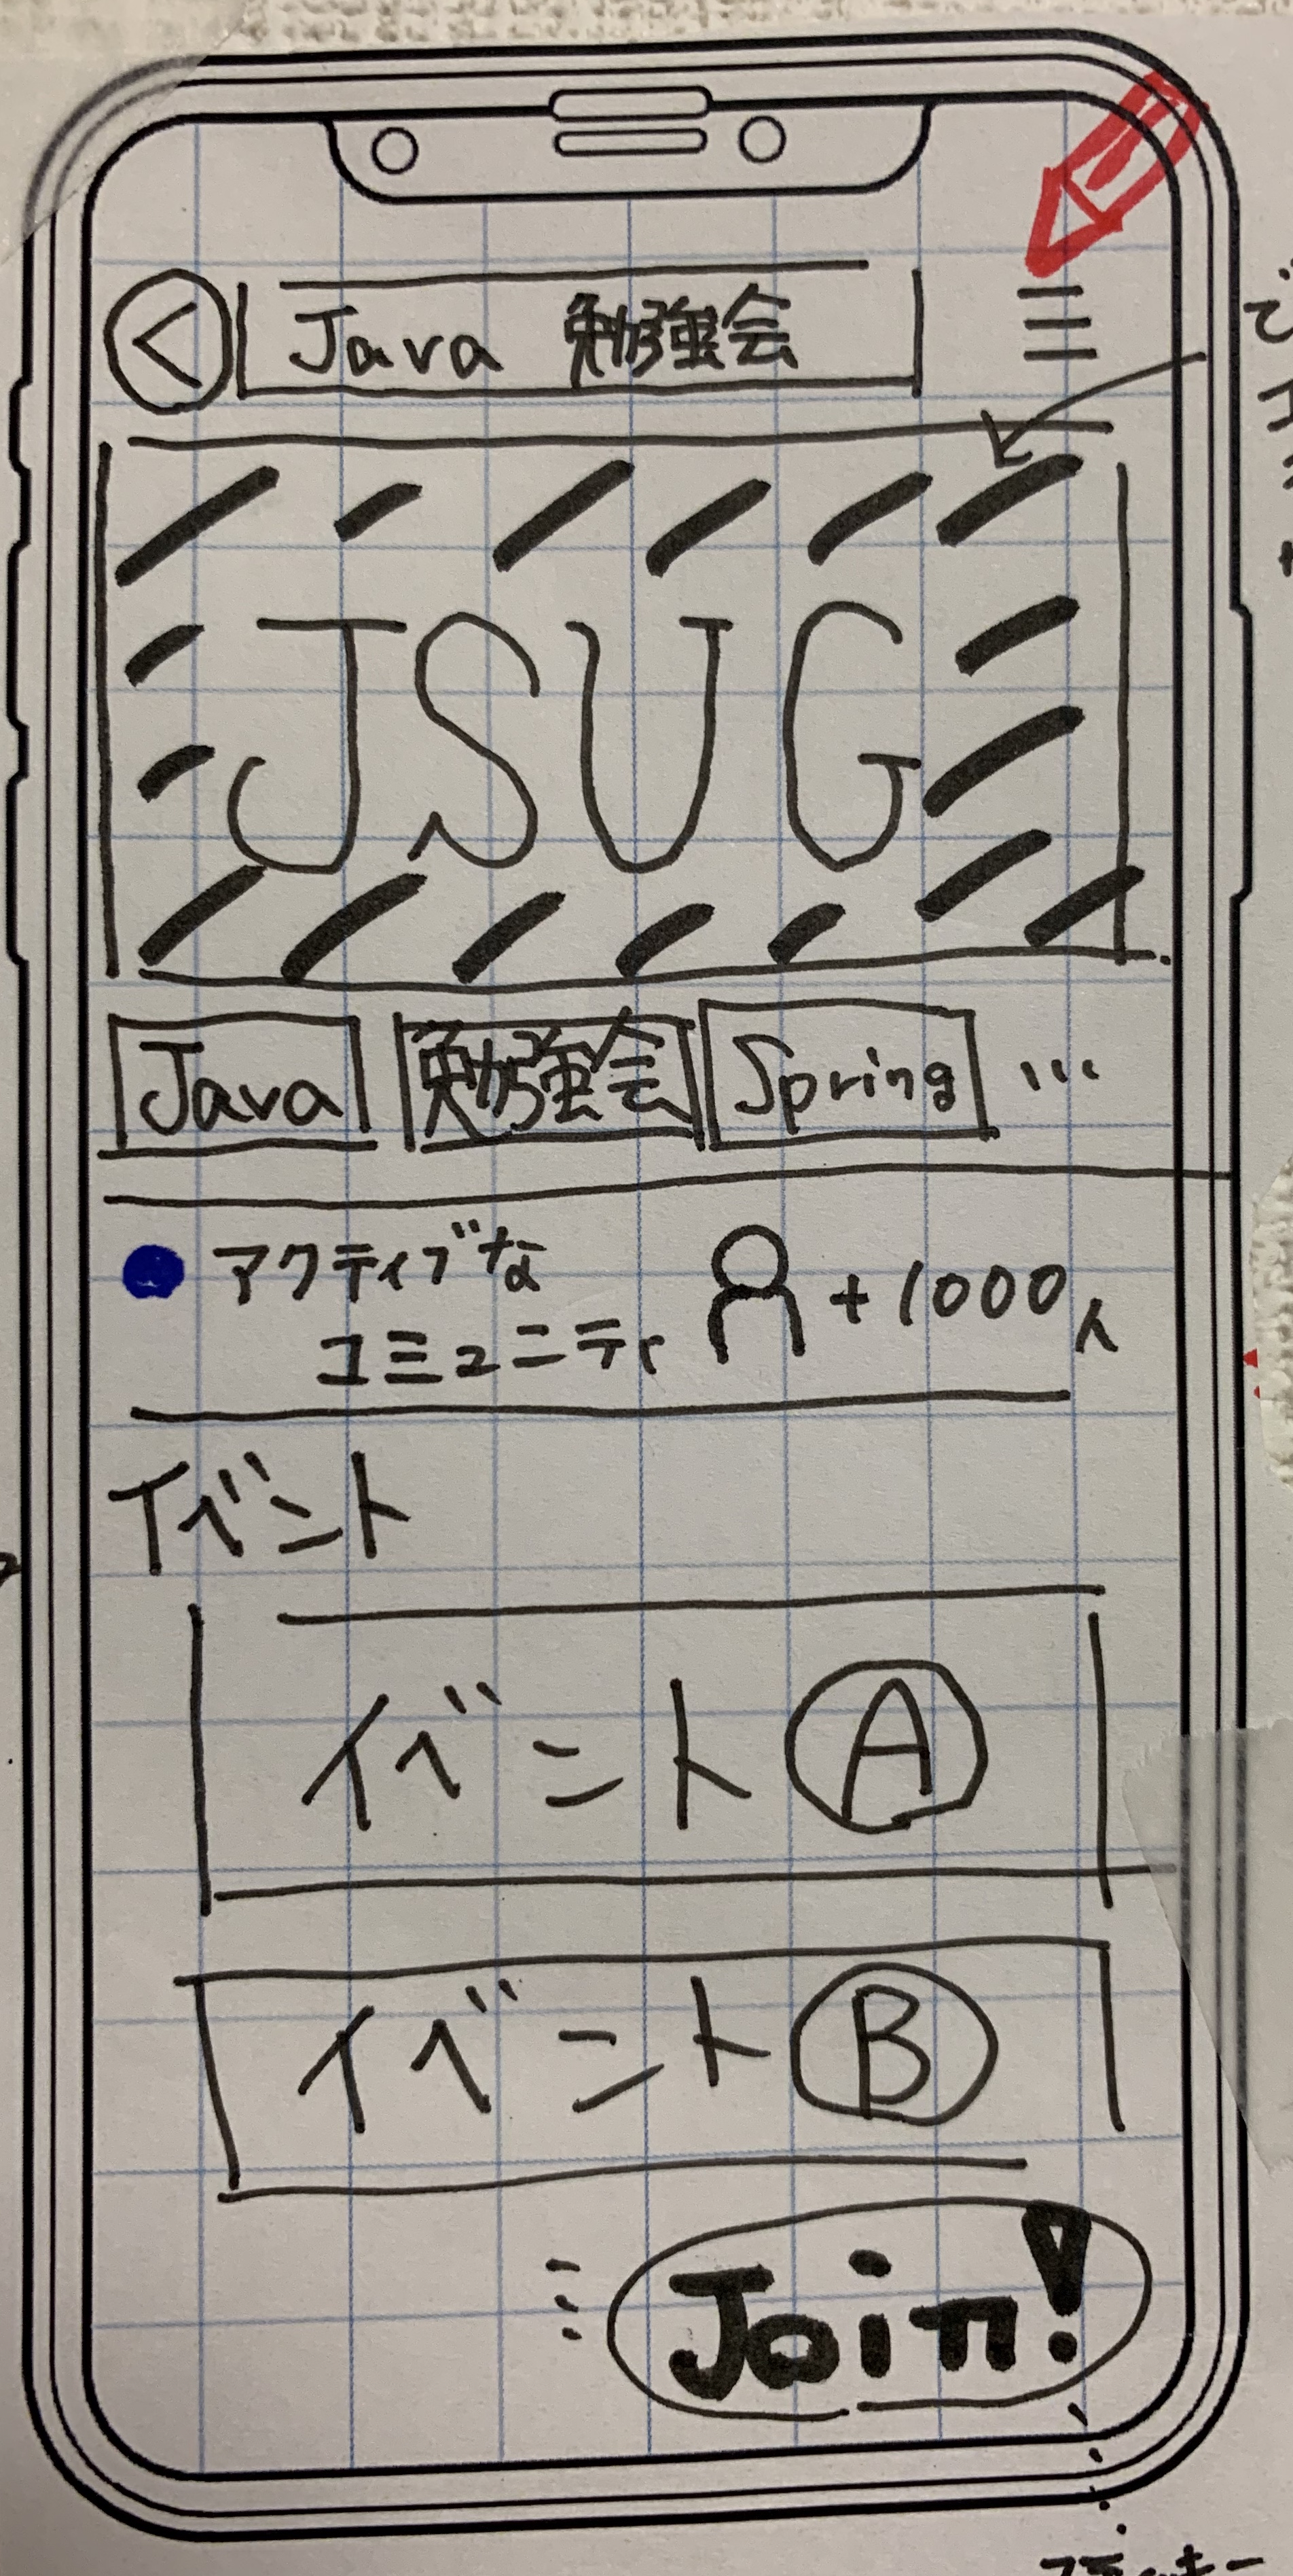 Java 勉強会
JSUG
Java 勉強会 Spring …
アクティブな
コミュニティ +1000人
イベント
イベント Ⓐ
イベント Ⓑ
Join!